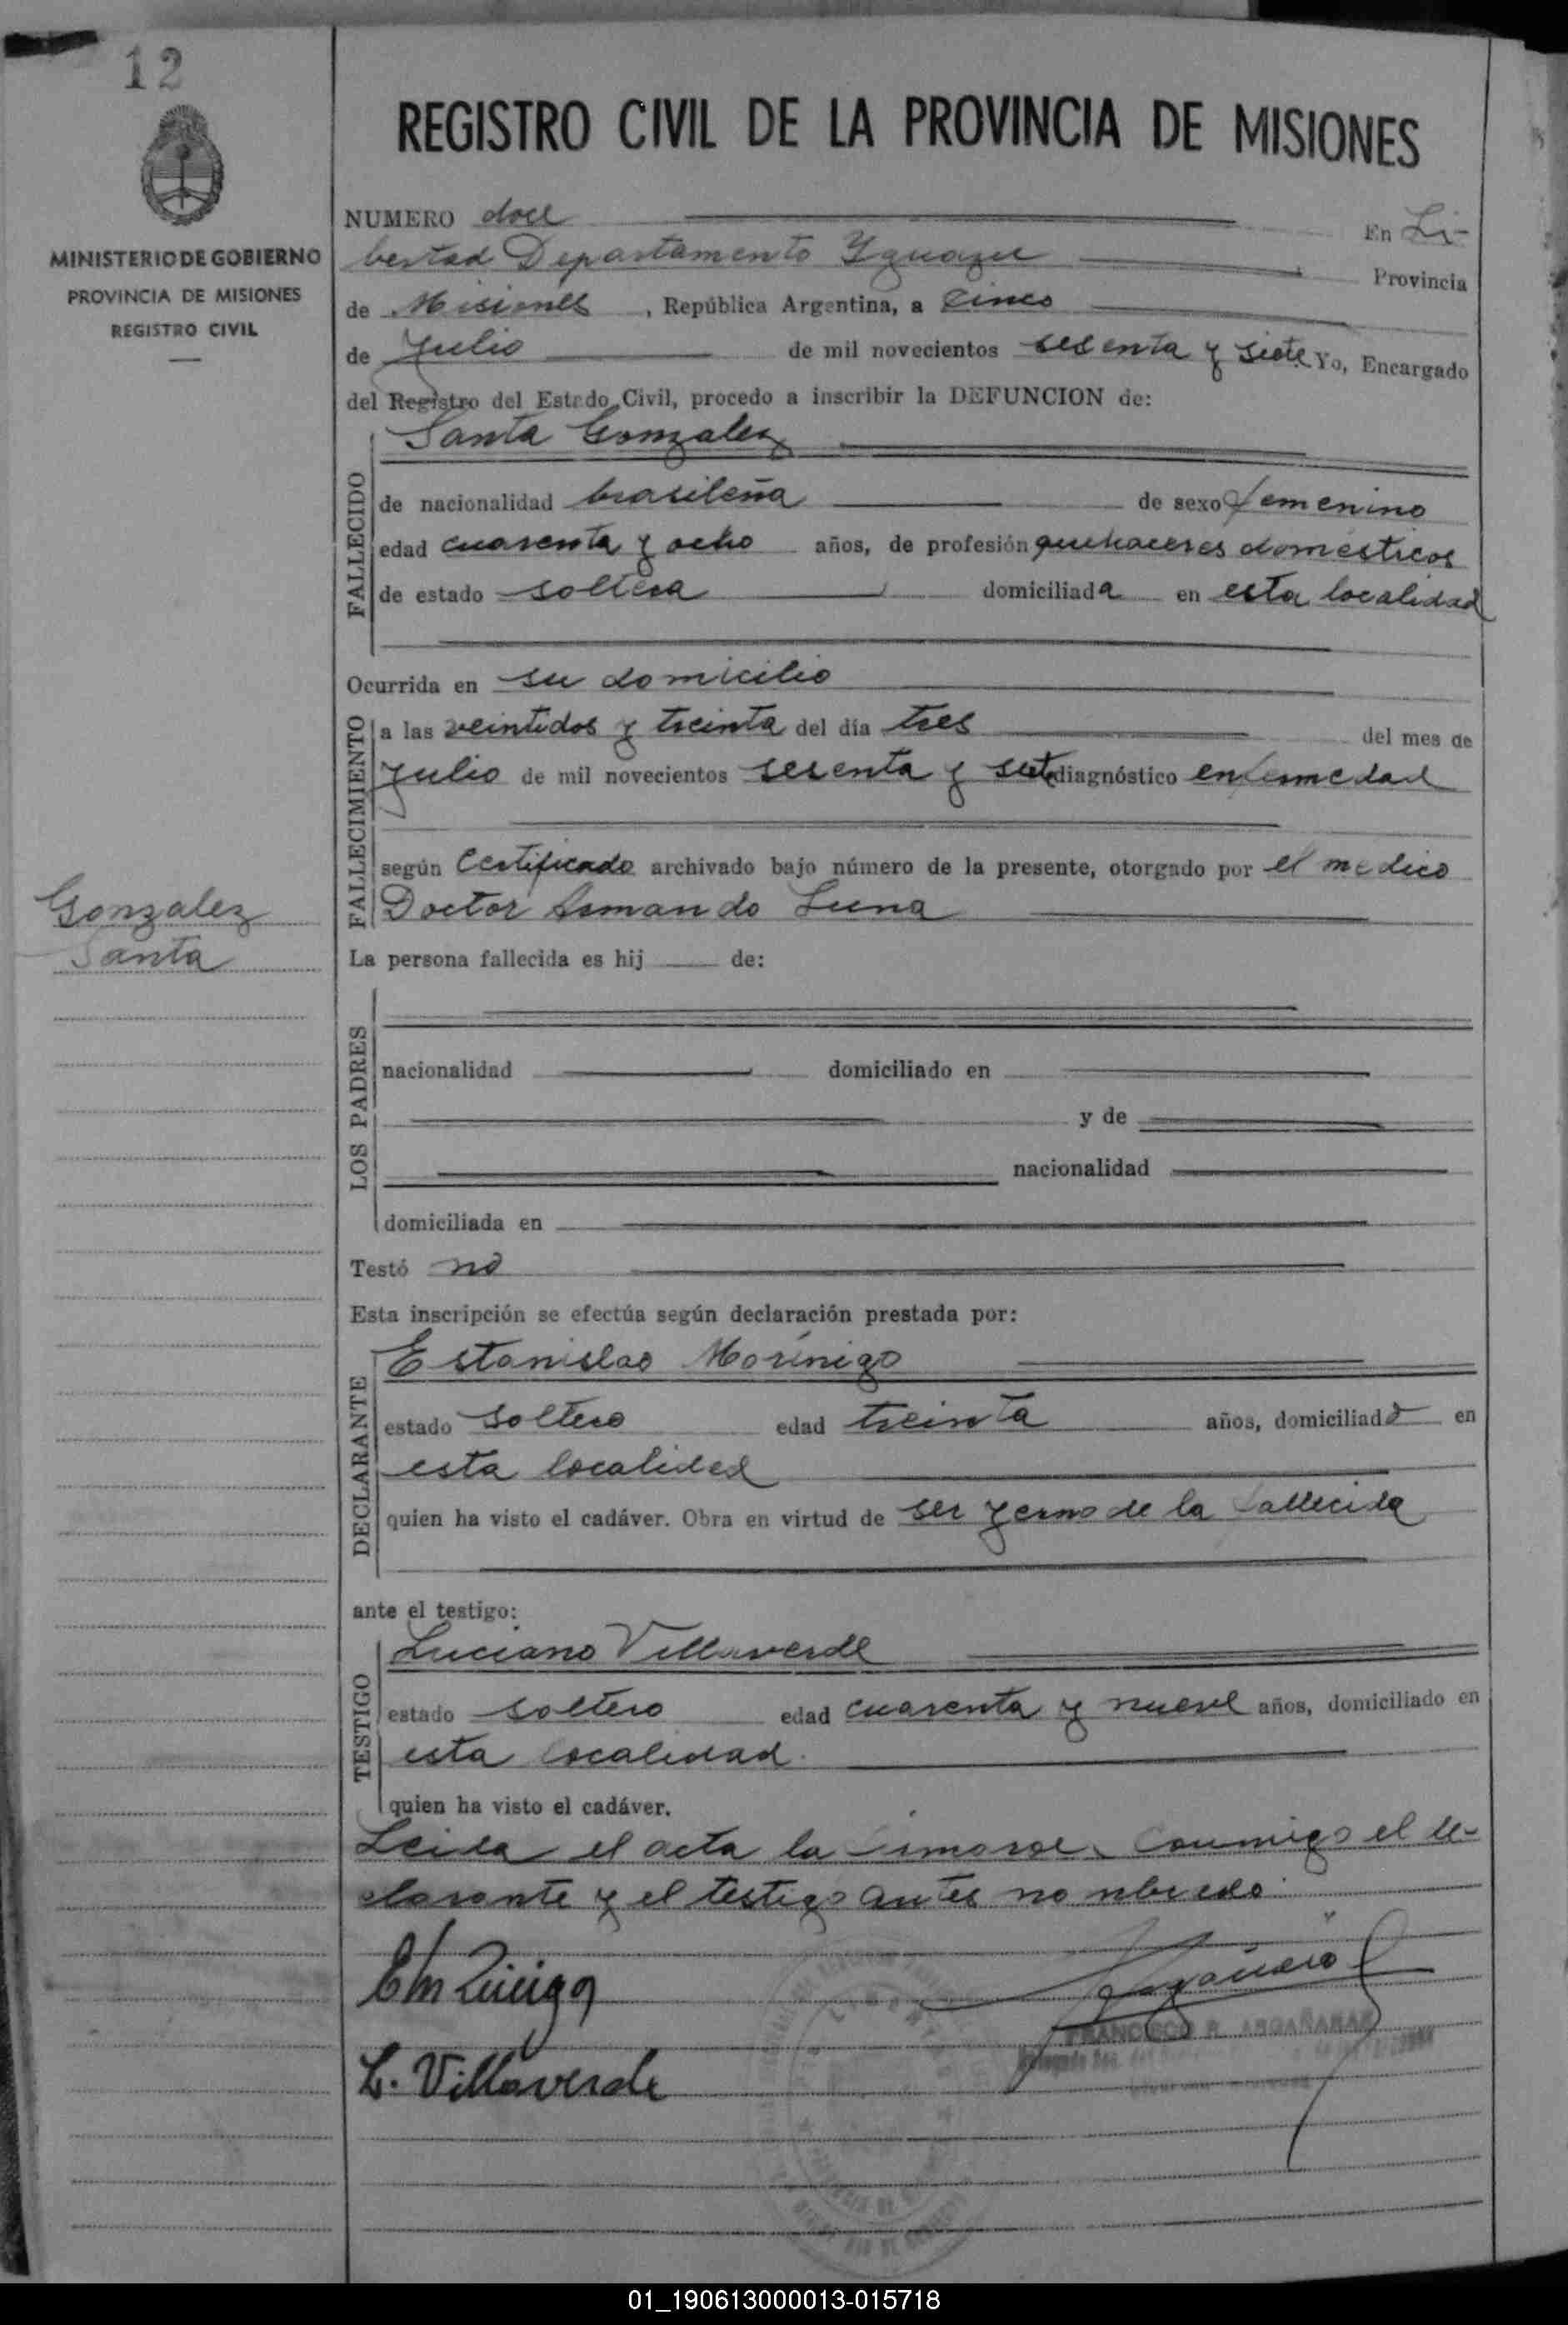 12
MINISTERIO DE GOBIERNO
PROVINCIA DE MISIONES
REGISTRO CIVIL
Gonzalez
Santa
REGISTRO CIVIL DE LA PROVINCIA DE MISIONES
NUMERO doce En Li-
bertad Departamento Yguazu Provincia
de Misiones, República Argentina, a Cinco
de Julio de mil novecientos sesenta y siete Yo, Encargado
del Registro del Estado Civil, procedo a inscribir la DEFUNCION de:
FALLECIDO
Santa Gonzalez
de nacionalidad brasileña de sexo femenino
edad cuarenta y ocho años, de profesión quehaceres domésticos
de estado soltera domiciliada en esta localidad
Ocurrida en su domicilio
FALLECIMIENTO
a las veintidos y treinta del día tres del mes de
Julio de mil novecientos sesenta y siete diagnóstico enfermedad
según Certificado archivado bajo número de la presente, otorgado por el medico
Doctor Armando Luna
La persona fallecida es hij de:
LOS PADRES
nacionalidad domiciliado en
y de
nacionalidad
domiciliada en
Testó no
Esta inscripción se efectúa según declaración prestada por:
DECLARANTE
Estanislao Morínigo
estado Soltero edad treinta años, domiciliado en
esta localidad
quien ha visto el cadáver. Obra en virtud de ser yerno de la fallecida
ante el testigo:
TESTIGO
Luciano Villaverde
estado soltero edad cuarenta y nueve años, domiciliado en
esta localidad.
quien ha visto el cadáver.
Leida el acta la firmaron conmigo el de-
clarante y el testigo antes nombrado.
L. Villaverde
FRANCISCO R. ARGAÑARAZ
01_190613000013-015718